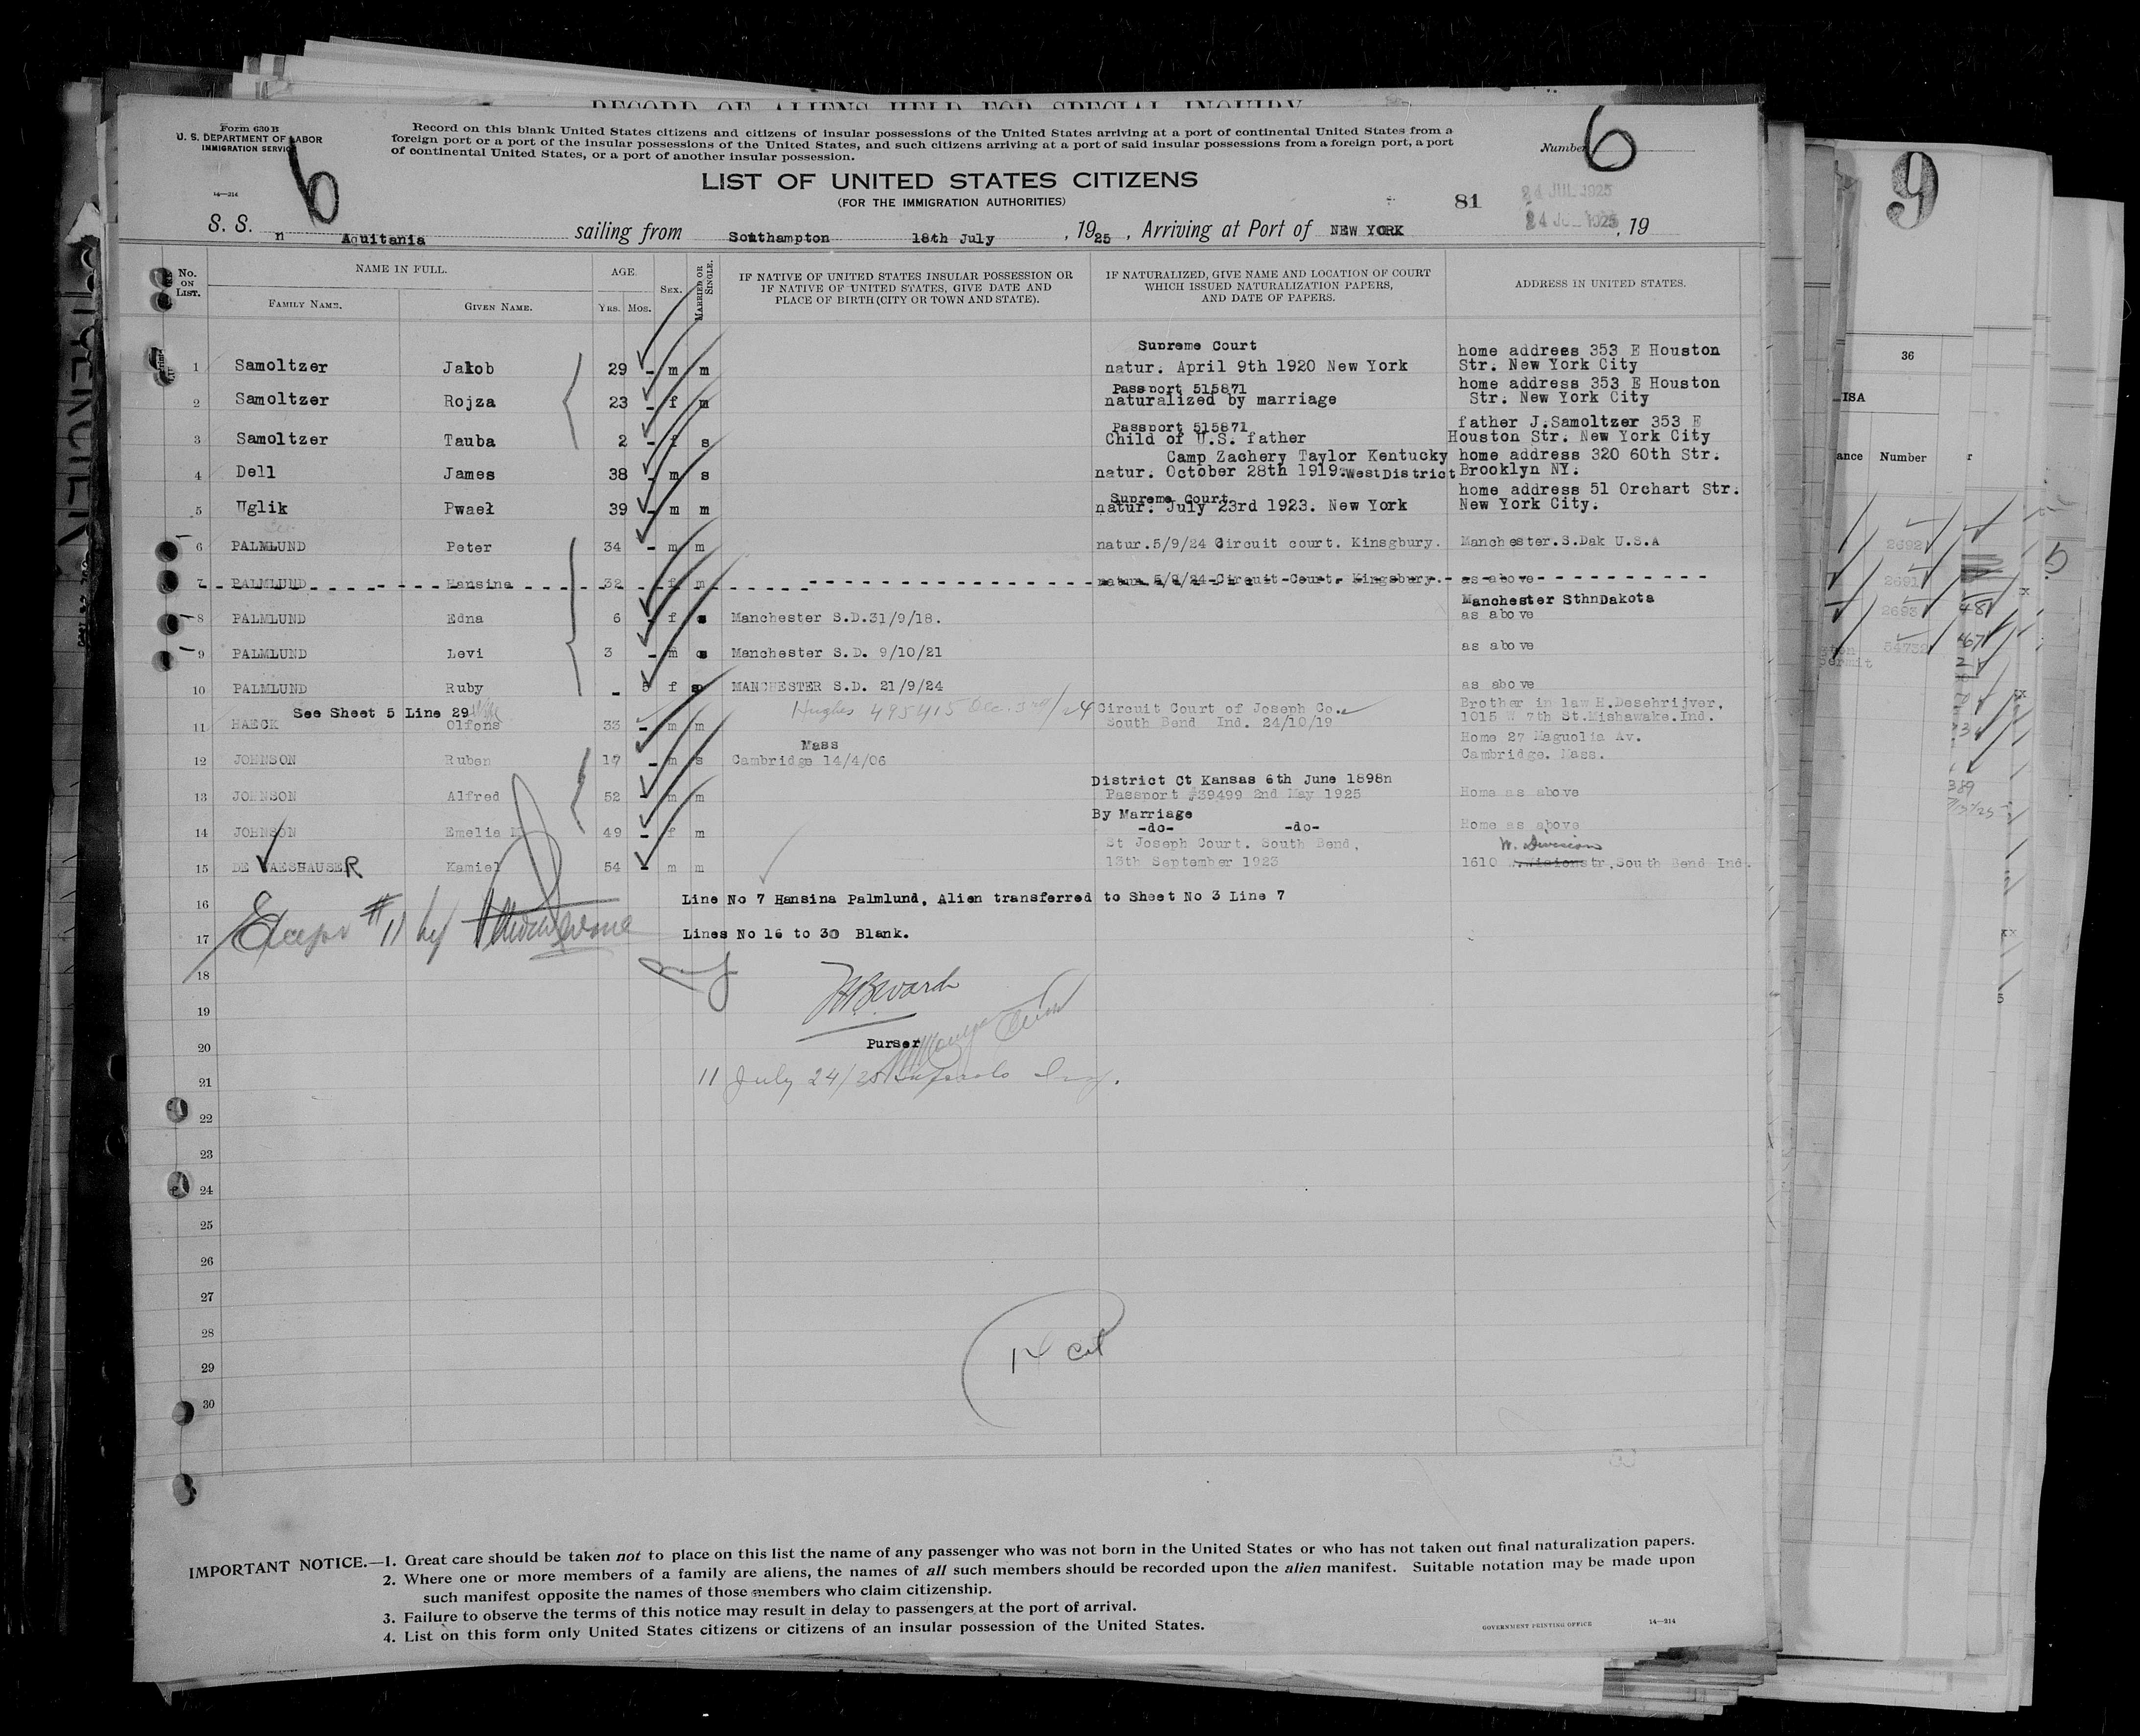 RECORD OF ALIENS HELD FOR SPECIAL INQUIRY
Form 630 B
U. S. DEPARTMENT OF LABOR
IMMIGRATION SERVICE
14—214
6
Record on this blank United States citizens and citizens of insular possessions of the United States arriving at a port of continental United States from a
foreign port or a port of the insular possessions of the United States, and such citizens arriving at a port of said insular possessions from a foreign port, a port
of continental United States, or a port of another insular possession.
Number 6
LIST OF UNITED STATES CITIZENS
(FOR THE IMMIGRATION AUTHORITIES)
81
24 JUL 1925
24 JUL 1925
S. S. n Aquitania sailing from Southampton 18th July , 1925 , Arriving at Port of NEW YORK , 19
No. ON LIST. NAME IN FULL. AGE. SEX. MARRIED OR SINGLE. IF NATIVE OF UNITED STATES INSULAR POSSESSION OR IF NATIVE OF UNITED STATES, GIVE DATE AND PLACE OF BIRTH (CITY OR TOWN AND STATE). IF NATURALIZED, GIVE NAME AND LOCATION OF COURT WHICH ISSUED NATURALIZATION PAPERS, AND DATE OF PAPERS. ADDRESS IN UNITED STATES.
FAMILY NAME. GIVEN NAME. YRS. MOS.
Supreme Court home addrees 353 E Houston
1 Samoltzer Jakob 29 - m m natur. April 9th 1920 New York Str. New York City
Passport 515871 home address 353 E Houston
2 Samoltzer Rojza 23 - f m naturalized by marriage Str. New York City
Passport 515871 father J.Samoltzer 353 E
3 Samoltzer Tauba 2 - f s Child of U.S. father Houston Str. New York City
Camp Zachery Taylor Kentucky home address 320 60th Str.
4 Dell James 38 - m s natur. October 28th 1919.West District Brooklyn NY.
Supreme Court home address 51 Orchart Str.
5 Uglik Pwaeł 39 - m m natur. July 23rd 1923. New York New York City.
6 PALMLUND Peter 34 - m m natur.5/9/24 Circuit court. Kinsgbury. Manchester.S.Dak U.S.A
7 PALMLUND Hansina 32 f m natur 5/9/24 Circuit Court. Kingsbury. as above
Manchester SthnDakota
8 PALMLUND Edna 6 - f s Manchester S.D.31/9/18. as above
9 PALMLUND Levi 3 - m s Manchester S.D. 9/10/21 as above
10 PALMLUND Ruby - 5 f s MANCHESTER S.D. 21/9/24 as above
See Sheet 5 Line 29 Hughes 495415 Dec. 3rd/24 Circuit Court of Joseph Co. Brother in law H.Deschrijver,
11 HAECK Olfons 33 - m m South Bend Ind. 24/10/19 1015 W 7th St.Mishawake.Ind.
Mass Home 27 Maguolia Av.
12 JOHNSON Ruben 17 - m s Cambridge 14/4/06 Cambridge. Mass.
District Ct Kansas 6th June 1898n
13 JOHNSON Alfred 52 - m m Passport #39499 2nd May 1925 Home as above
By Marriage
14 JOHNSON Emelia 49 - f m -do- -do- Home as above
St Joseph Court. South Bend, W. Division
15 DE VAESHAUSER Kamiel 54 - m m 13th September 1923 1610 str,South Bend Ind.
16 Line No 7 Hansina Palmlund, Alien transferred to Sheet No 3 Line 7
17 #11 by Lines No 16 to 30 Blank.
18
19
20 Purser
21 11 July 24/25
22
23
24
25
26
27
28
14 cit
29
30
IMPORTANT NOTICE.—1. Great care should be taken not to place on this list the name of any passenger who was not born in the United States or who has not taken out final naturalization papers.
2. Where one or more members of a family are aliens, the names of all such members should be recorded upon the alien manifest. Suitable notation may be made upon
such manifest opposite the names of those members who claim citizenship.
3. Failure to observe the terms of this notice may result in delay to passengers at the port of arrival.
4. List on this form only United States citizens or citizens of an insular possession of the United States.
GOVERNMENT PRINTING OFFICE 14—214
9
36
ance Number
2692
2691
2693
54732
48
67
389